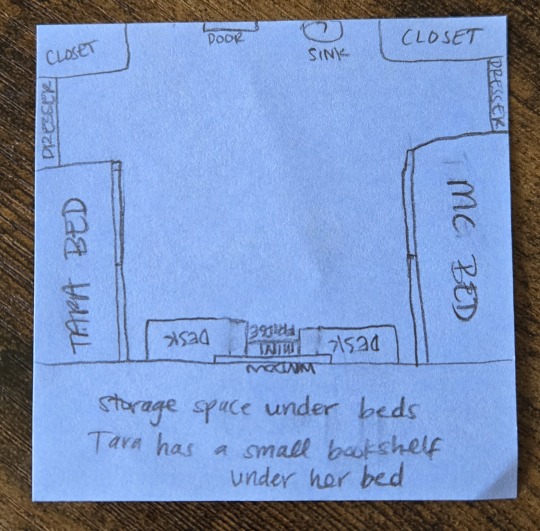 CLOSET
DOOR
SINK
CLOSET
DRESSER
DRESSER
TARA BED
MC BED
DESK
MINI
FRIDGE
DESK
WINDOW
storage space under beds
Tara has a small bookshelf
under her bed